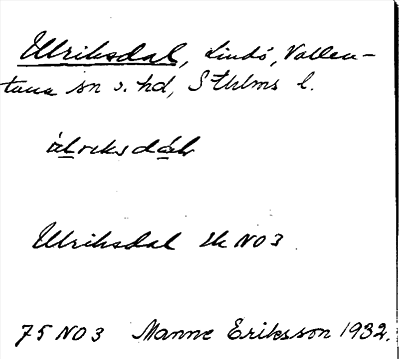 Ulriksdal, Lindö, Vallen-
tuna sn o. hd, Sthlms l.
Ulriksdal sk NO3
75 NO 3 Manne Eriksson 1932.